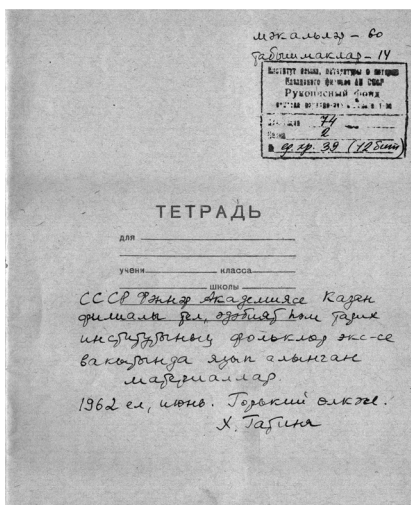 мәкальләр – 60
табышмаклар – 14
Институт языка, литературы и истории
Казанского филиала АН СССР
Рукописный фонд
74
2
№ ед. хр. 39 (12 бит)
ТЕТРАДЬ
для
учени класса
школы
СССР Фәннәр Академиясе Казан
филиалы тел, әдәбият һәм тарих
институтының фольклор экс-се
вакытында язып алынган
материаллар.
1962 ел, июнь. Горький өлкәсе.
Х. Гатина